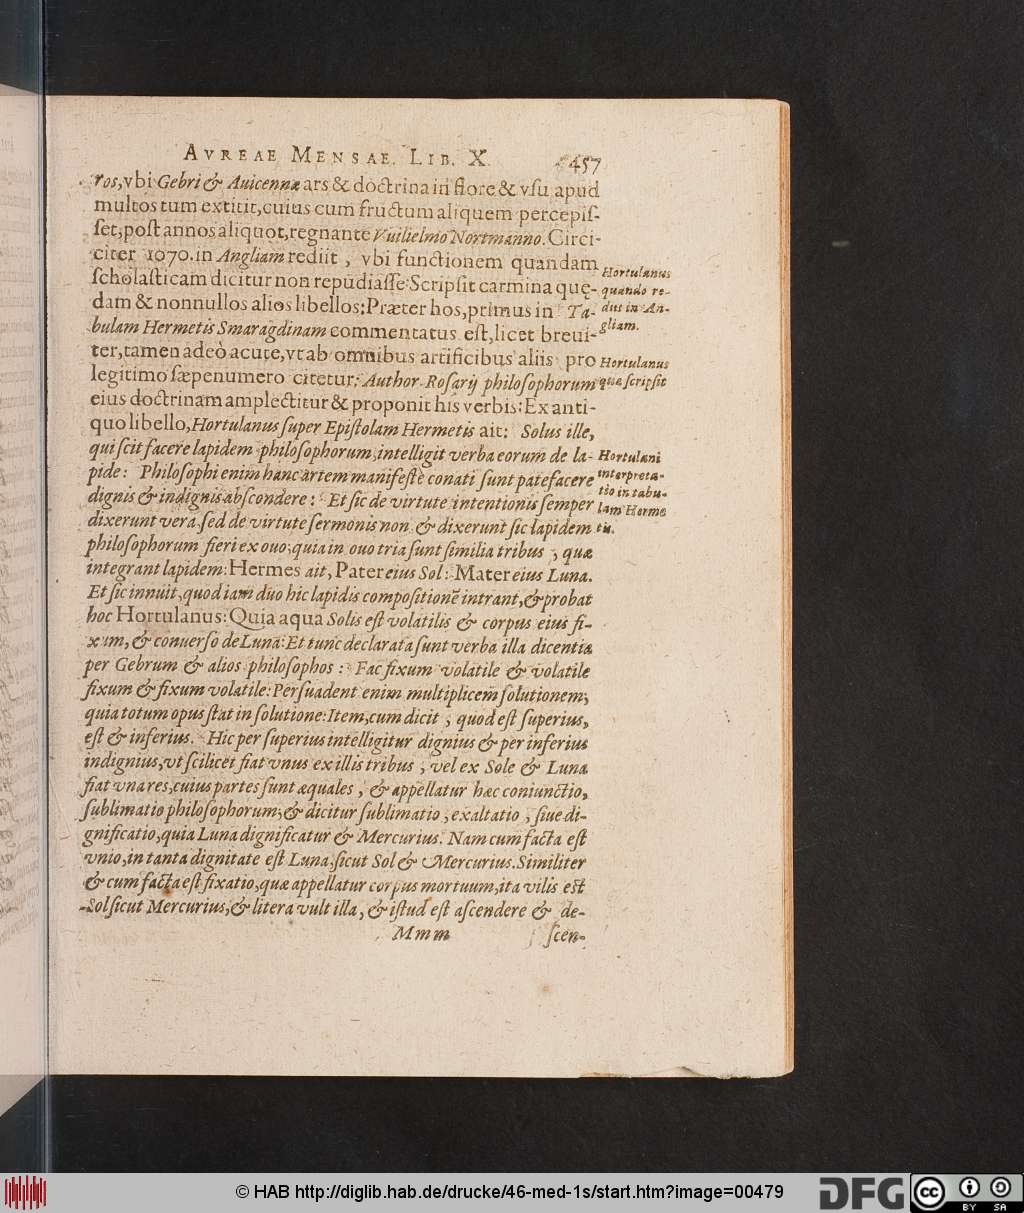 AVREAE MENSAE. LIB. X. 457
ros, vbi Gebri & Auicennæ ars & doctrina in flore & vsu apud
multos tum extitit, cuius cum fructum aliquem percepiſ-
ſet, poſt annos aliquot, regnante Vuilielmo Nortmanno. Circi-
citer 1070. in Angliam rediit, vbi functionem quandam
ſcholaſticam dicitur non repudiaſſe: Scripſit carmina quę-
dam & nonnullos alios libellos: Præter hos, primus in Ta-
bulam Hermetis Smaragdinam commentatus eſt, licet breui-
ter, tamen adeò acute, vt ab omnibus artificibus aliis pro
legitimo ſæpenumero citetur: Author Roſarij philoſophorum
eius doctrinam amplectitur & proponit his verbis: Ex anti-
quo libello, Hortulanus ſuper Epiſtolam Hermetis ait: Solus ille,
qui ſcit facere lapidem philoſophorum, intelligit verba eorum de la-
pide: Philoſophi enim hanc artem manifeſtè conati ſunt patefacere
dignis & indignis abſcondere: Et ſic de virtute intentionis ſemper
dixerunt vera, ſed de virtute ſermonis non & dixerunt ſic lapidem
philoſophorum fieri ex ouo, quia in ouo tria ſunt ſimilia tribus, quæ
integrant lapidem: Hermes ait, Pater eius Sol: Mater eius Luna.
Et ſic innuit, quod iam duo hic lapidis compoſitionē intrant, & probat
hoc Hortulanus: Quia aqua Solis eſt volatilis & corpus eius fi-
xum, & conuerſo de Luna: Et tunc declarata ſunt verba illa dicentia
per Gebrum & alios philoſophos: Fac fixum volatile & volatile
fixum & fixum volatile: Perſuadent enim multiplicem ſolutionem,
quia totum opus ſtat in ſolutione: Item, cum dicit, quod eſt ſuperius,
eſt & inferius. Hic per ſuperius intelligitur dignius & per inferius
indignius, vt ſcilicet fiat vnus ex illis tribus, vel ex Sole & Luna
fiat vna res, cuius partes ſunt æquales, & appellatur hæc coniunctio,
ſublimatio philoſophorum, & dicitur ſublimatio, exaltatio, ſiue di-
gnificatio, quia Luna dignificatur & Mercurius. Nam cum facta eſt
vnio, in tanta dignitate eſt Luna, ſicut Sol & Mercurius. Similiter
& cum facta eſt fixatio, quæ appellatur corpus mortuum, ita vilis eſt
Sol ſicut Mercurius, & litera vult illa, & iſtud eſt aſcendere & de-
Mmm ſcen-
Hortulanus
quando re-
diit in An-
gliam.
Hortulanus
quæ ſcripſit
Hortulani
interpreta-
tio in tabu-
lam Herme
tis.
© HAB http://diglib.hab.de/drucke/46-med-1s/start.htm?image=00479
DFG
cc BY SA